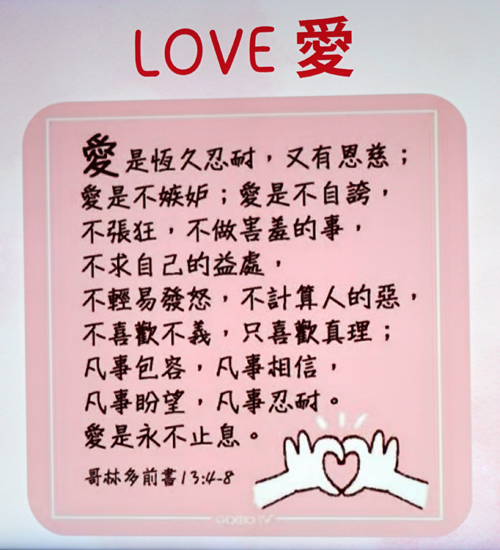 LOVE 愛
愛是恆久忍耐，又有恩慈；
愛是不嫉妒；愛是不自誇，
不張狂，不做害羞的事，
不求自己的益處，
不輕易發怒，不計算人的惡，
不喜歡不義，只喜歡真理；
凡事包容，凡事相信，
凡事盼望，凡事忍耐。
愛是永不止息。
哥林多前書13:4-8